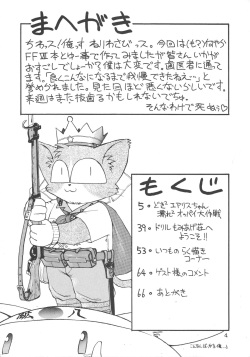 まへがき
ちわっス!俺っす ねりわさびっス。今回は(も?)なにやら
FFⅦ本とゆー事で作ってみましたが皆さんいかが
おすごしでしょーか?僕は大変です。歯医者に通って
ます。「良くこんなになるまで我慢できたねえ…」と
誉められました。見た目ほど悪くないらしいです。
来週はまた抜歯するかもしれないでっちゅ。
そんなわけで死ぬっ♡
もくじ
5・どきどきエアリスちゃん
濡れ オッパイ大作戦
39・ドリルもみあげ荘へ
ようこそ!!
53・いつものらく描き
コーナー
64・ゲスト様のコメント
66・あとがき
4